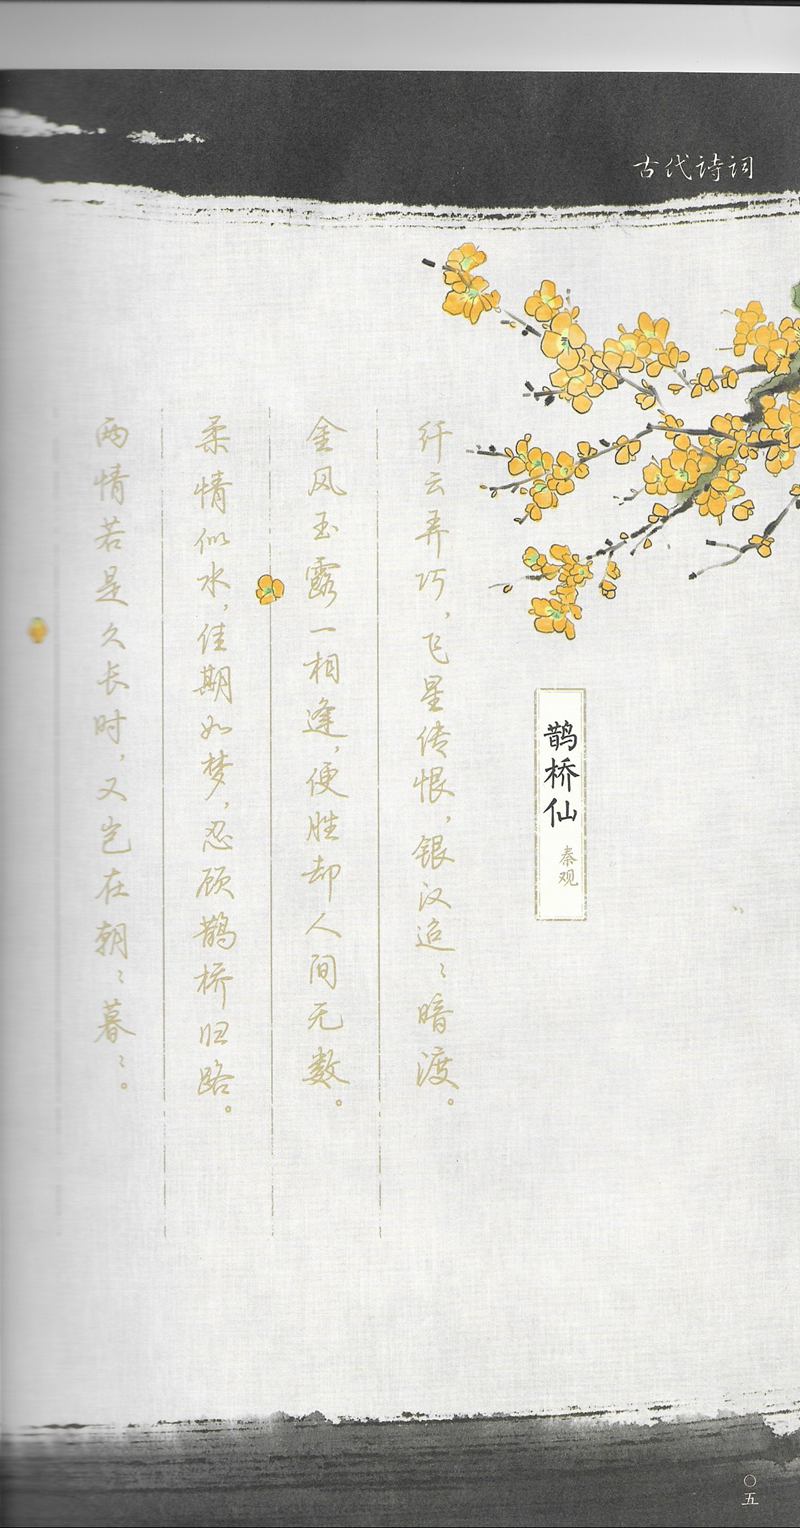 古代诗词
鹊桥仙
秦观
纤云弄巧，飞星传恨，银汉迢〻暗渡。
金风玉露一相逢，便胜却人间无数。
柔情似水，佳期如梦，忍顾鹊桥归路。
两情若是久长时，又岂在朝〻暮〻。
〇五